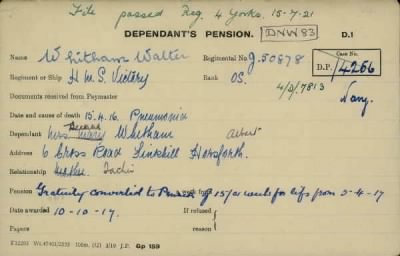 File passed Reg. 4 Yorks. 15-7-21
DEPENDANT'S PENSION. DNW 83 D.1
Name Whitham Walter Regimental No J.50878 Case No.
D.P. 14266
Regiment or Ship H.M.S. Victory Rank OS.
4/D/7813
Documents received from Paymaster Navy.
Date and cause of death 15.4.16. Pneumonia
Dependant Mrs Mary Whitham Albert
Address 6 Cross Road Horsforth
Relationship Mother
Pension Gratuity converted to Pension of 15/- a week for life from 2-4-17
Date awarded 10-10-17. If refused
Papers reason
100m. (12) 1/19 J.P. Gp 159